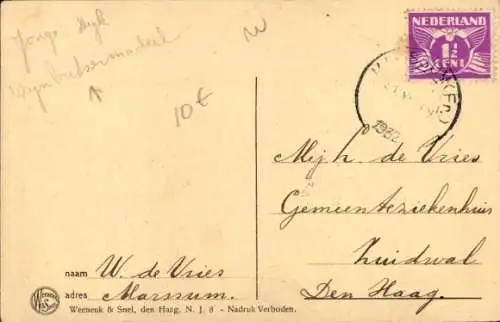 10€
NEDERLAND
1½
CENT
1932
Mejh. de Vries
Gemeenteziekenhuis
Zuidwal
Den Haag.
naam W. de Vries
adres Marssum.
Weenenk & Snel, den Haag. N. J. 8 - Nadruk Verboden.